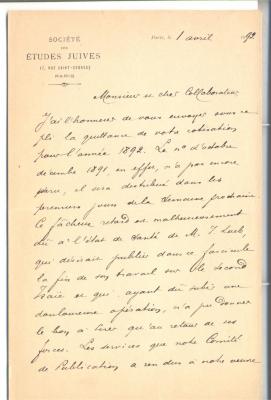 SOCIÉTÉ
DES
ÉTUDES JUIVES
17, RUE SAINT-GEORGES
PARIS
Paris, le 1 avril 1892
Monsieur et cher Collaborateur
J'ai l'honneur de vous envoyer sous ce
pli la quittance de votre cotisation
pour l'année 1892. Le n° d'octobre
décembre 1891, en effet, n'a pas encore
paru, il sera distribué dans les
premiers jours de la semaine prochaine.
Ce fâcheux retard est malheureusement
dû à l'état de santé de M. I. Loeb,
qui désirait publier dans ce fascicule
la fin de son travail sur le second
Isaïe et qui ayant dû subir une
douloureuse opération, n'a pu donner
le bon à tirer qu'au retour de ses
forces. Les services que notre Comité
de Publication a rendus à notre œuvre